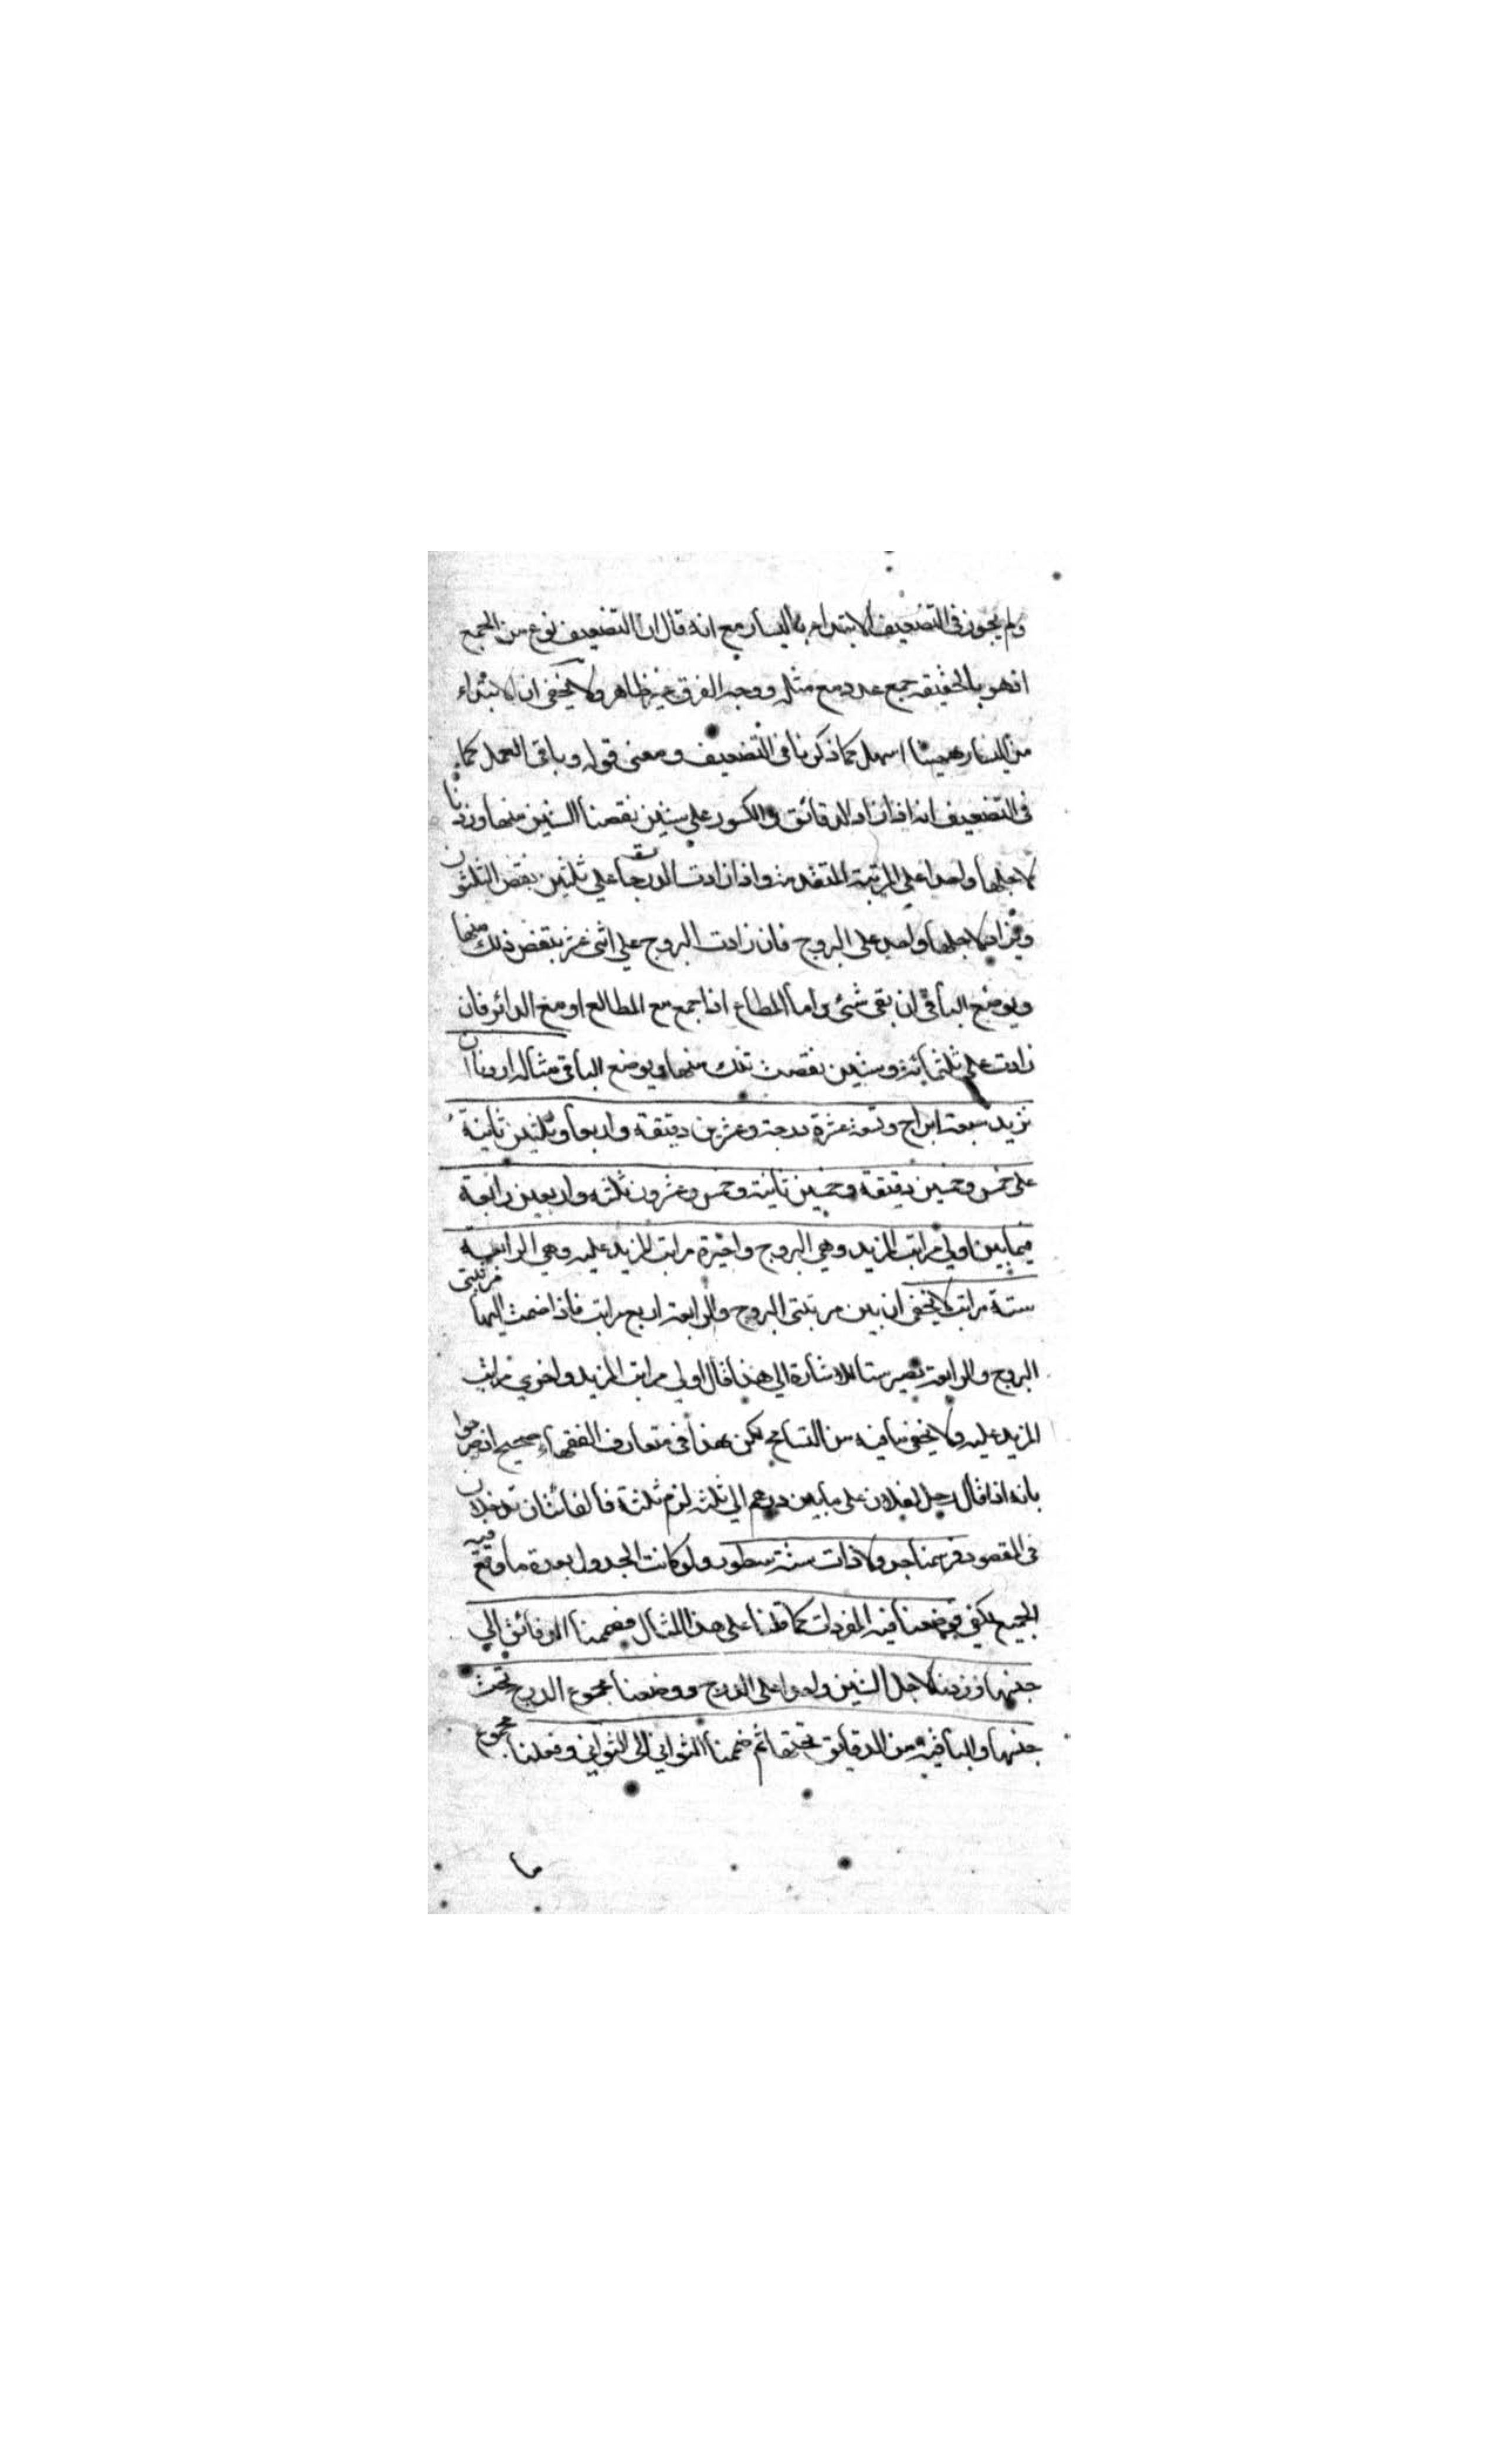 ولم يجوز في التضعيف الابتداء باليسار مع انه قال ان التضعيف نوع من الجمع
اذ هو بالحقيقة جمع عدد مع مثله ووجه الفرق غير ظاهر ولا يخفى ان الابتداء
من اليسار ههنا اسهل كما ذكرنا في التضعيف ومعنى قوله وباقي العمل كما
في التضعيف انه اذا زاد الدقائق والكسور على ستين نقصنا الستين منها وزدنا
لاجلها واحدا على المرتبة المتقدمة واذا زادت الدرجات على ثلثين نقص الثلثون
ويزاد لاجلها واحد على البروج فان زادت البروج على اثنى عشر ينقص ذلك منها
ويوضع الباقي ان بقى شئ واما المطالع اذا جمع مع المطالع او مع الدائر فان
زادت على ثلثمائة وستين نقصت تلك منها ويوضع الباقي مثاله اردنا ان
نزيد سبعة ابراج وتسعة عشرة درجة وعشرين دقيقة واربعا وثلثين ثانية
على خمس وخمسين دقيقة وخمسين ثانية وخمس وعشرون ثلثه واربعين رابعة
فيما بين اولى مراتب المزيد وهي البروج واخيرة مراتب المزيد عليه وهي الرابعة
ستة مراتب لا يخفى ان بين مرتبتي البروج والرابعة اربع مراتب فاذا ضمت اليها مرتبتي
البروج والرابعة تصير ستا للاشارة الى هذا قال اولى مراتب المزيد واخرى مراتب
المزيد عليه ولا يخفى ما فيه من التسامح لكن هذا في متعارف الفقهاء صحيح اذ صرحوا
بانه اذا قال رجل لفلان على ما بين درهم الى ثلثه لزم ثلثة فالغائتان تدخلان
في المقصود فرسمنا جدولا ذات ستة سطور ولو كانت الجدول بعدة ما وقع فيه
الجميع يكفي ووضعنا فيه المفردات كما قلنا على هذا المثال فضممنا الدقائق الى
جنسها وزدنا لاجل الستين واحدا على الدرج ووضعنا مجموع الدرج تحت
جنسها والباقية من الدقايق تحتها ثم ضممنا الثواني الى الثواني وفعلنا مجموع
ما